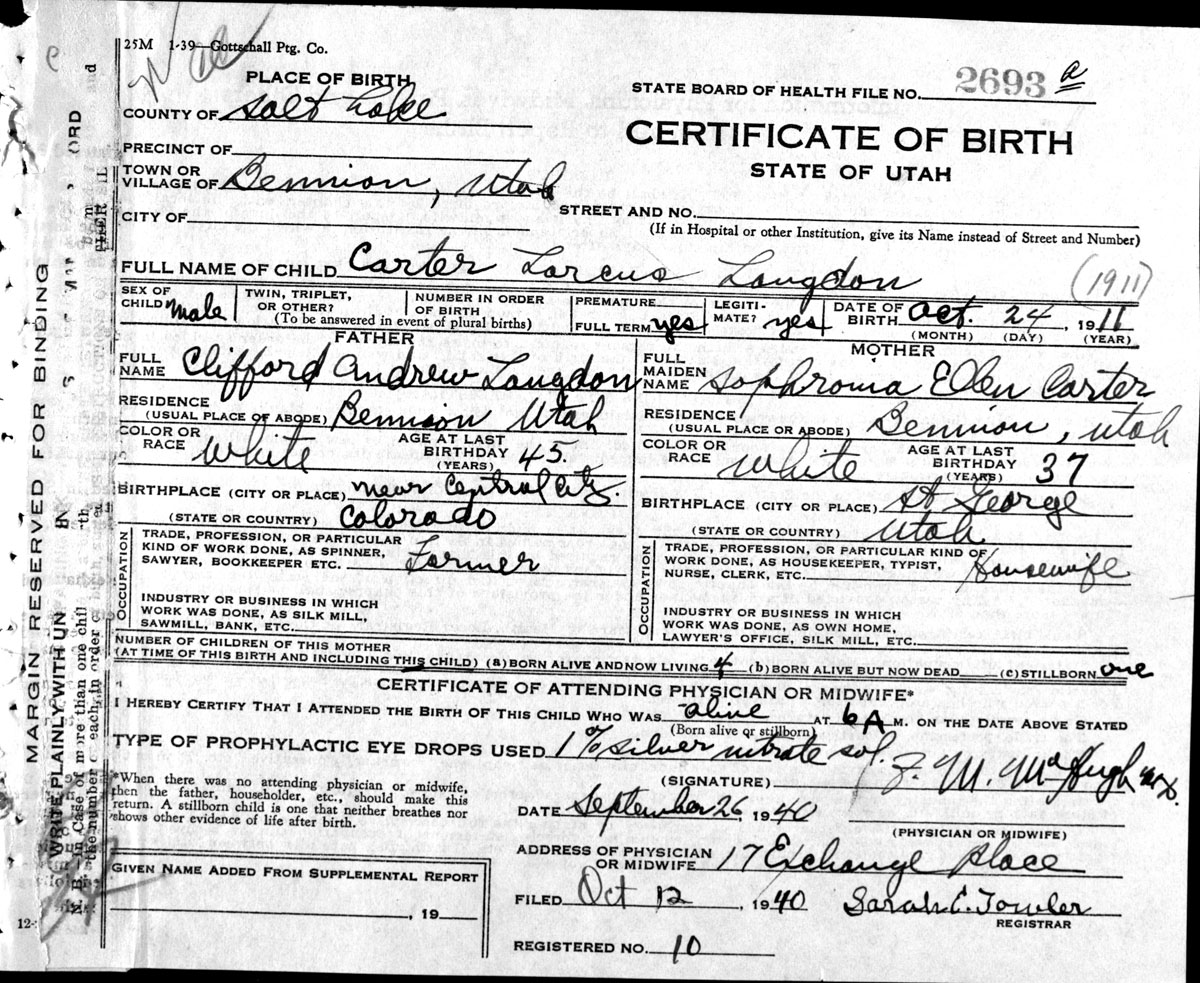 25M 1-39—Gottschall Ptg. Co.
PLACE OF BIRTH
STATE BOARD OF HEALTH FILE NO. 2693 a
COUNTY OF Salt Lake
CERTIFICATE OF BIRTH
PRECINCT OF
STATE OF UTAH
TOWN OR VILLAGE OF Bennion, Utah
STREET AND NO.
CITY OF
(If in Hospital or other Institution, give its Name instead of Street and Number)
FULL NAME OF CHILD Carter Langdon
(1911)
SEX OF CHILD Male
TWIN, TRIPLET, OR OTHER?
NUMBER IN ORDER OF BIRTH
(To be answered in event of plural births)
PREMATURE
FULL TERM yes
LEGITI- MATE? yes
DATE OF BIRTH Oct. 24, 1911
(MONTH) (DAY) (YEAR)
FATHER
FULL NAME Clifford Andrew Langdon
RESIDENCE (USUAL PLACE OF ABODE) Bennion Utah
COLOR OR RACE White
AGE AT LAST BIRTHDAY (YEARS) 45
BIRTHPLACE (CITY OR PLACE) near Central City.
(STATE OR COUNTRY) Colorado
OCCUPATION
TRADE, PROFESSION, OR PARTICULAR
KIND OF WORK DONE, AS SPINNER,
SAWYER, BOOKKEEPER ETC. Farmer
INDUSTRY OR BUSINESS IN WHICH
WORK WAS DONE, AS SILK MILL,
SAWMILL, BANK, ETC.
MOTHER
FULL MAIDEN NAME Sophronia Ellen Carter
RESIDENCE (USUAL PLACE OR ABODE) Bennion, Utah
COLOR OR RACE White
AGE AT LAST BIRTHDAY (YEARS) 37
BIRTHPLACE (CITY OR PLACE) St George
(STATE OR COUNTRY) Utah
OCCUPATION
TRADE, PROFESSION, OR PARTICULAR KIND OF
WORK DONE, AS HOUSEKEEPER, TYPIST,
NURSE, CLERK, ETC. Housewife
INDUSTRY OR BUSINESS IN WHICH
WORK WAS DONE, AS OWN HOME,
LAWYER'S OFFICE, SILK MILL, ETC.
NUMBER OF CHILDREN OF THIS MOTHER
(AT TIME OF THIS BIRTH AND INCLUDING THIS CHILD) (a) BORN ALIVE AND NOW LIVING 4 (b) BORN ALIVE BUT NOW DEAD (c) STILLBORN one
CERTIFICATE OF ATTENDING PHYSICIAN OR MIDWIFE*
I HEREBY CERTIFY THAT I ATTENDED THE BIRTH OF THIS CHILD WHO WAS alive AT 6 A M. ON THE DATE ABOVE STATED
(Born alive or stillborn)
TYPE OF PROPHYLACTIC EYE DROPS USED 1% silver nitrate sol.
*When there was no attending physician or midwife,
then the father, householder, etc., should make this
return. A stillborn child is one that neither breathes nor
shows other evidence of life after birth.
(SIGNATURE) M. McHugh
DATE September 26, 1940
(PHYSICIAN OR MIDWIFE)
ADDRESS OF PHYSICIAN OR MIDWIFE 17 Exchange Place
GIVEN NAME ADDED FROM SUPPLEMENTAL REPORT
, 19
FILED Oct 12, 1940
Sarah E. Fowler
REGISTRAR
REGISTERED NO. 10
12-
MARGIN RESERVED FOR BINDING
WRITE PLAINLY WITH UN
N. B. In Case of more than one chil
the number each, in order